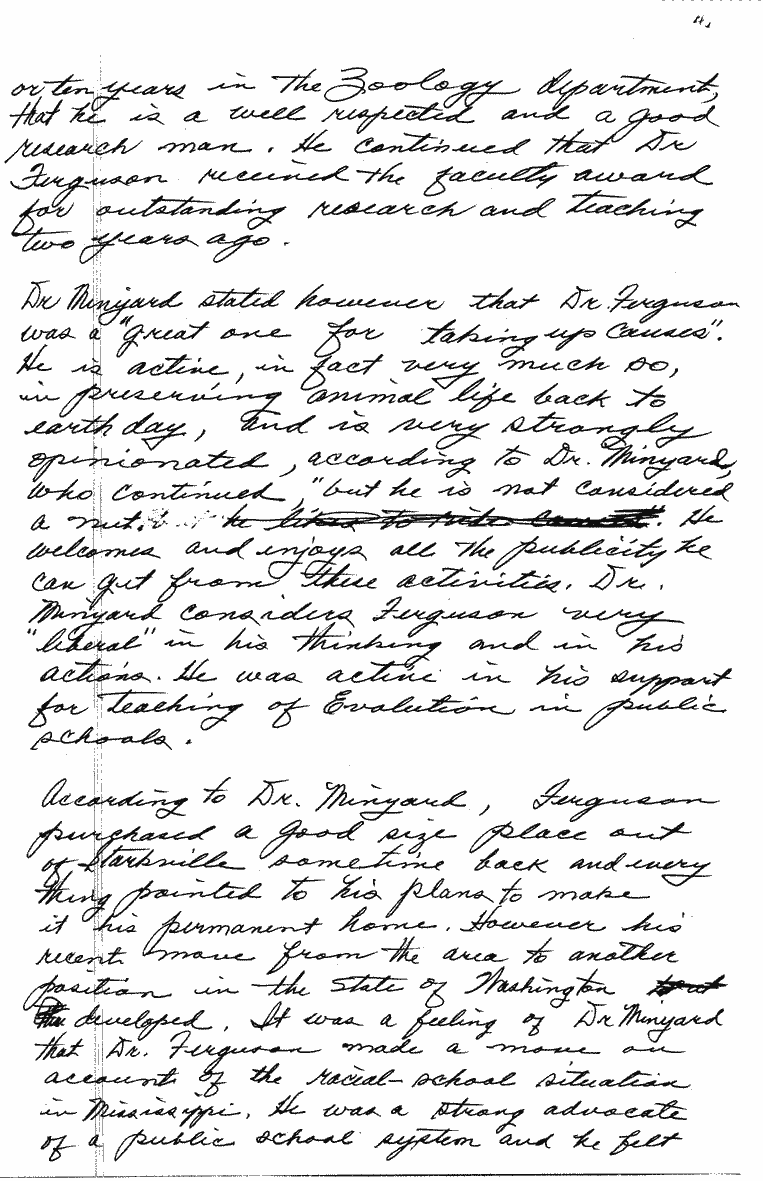 4.
or ten years in the Zoology department,
that he is a well respected and a good
research man. He continued that Dr
Ferguson received the faculty award
for outstanding research and teaching
two years ago.
Dr Minyard stated however that Dr. Ferguson
was a "great one for taking up causes".
He is active, in fact very much so,
in preserving animal life back to
earth day, and is very strongly
opinionated, according to Dr. Minyard,
who continued, "but he is not considered
a nut. he likes to . He
welcomes and enjoys all the publicity he
can get from these activities. Dr.
Minyard considers Ferguson very
"liberal" in his thinking and in his
actions. He was active in his support
for teaching of Evolution in public
schools.
According to Dr. Minyard, Ferguson
purchased a good size place out
of Starkville sometime back and every
thing pointed to his plans to make
it his permanent home. However his
recent move from the area to another
position in the State of Washington
developed. It was a feeling of Dr Minyard
that Dr. Ferguson made a move on
account of the racial-school situation
in Mississippi. He was a strong advocate
of a public school system and he felt